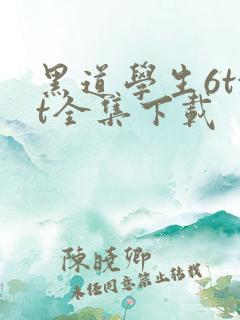 黑道學生6tx
t全集下載
陳曉卿
未经同意禁止转载